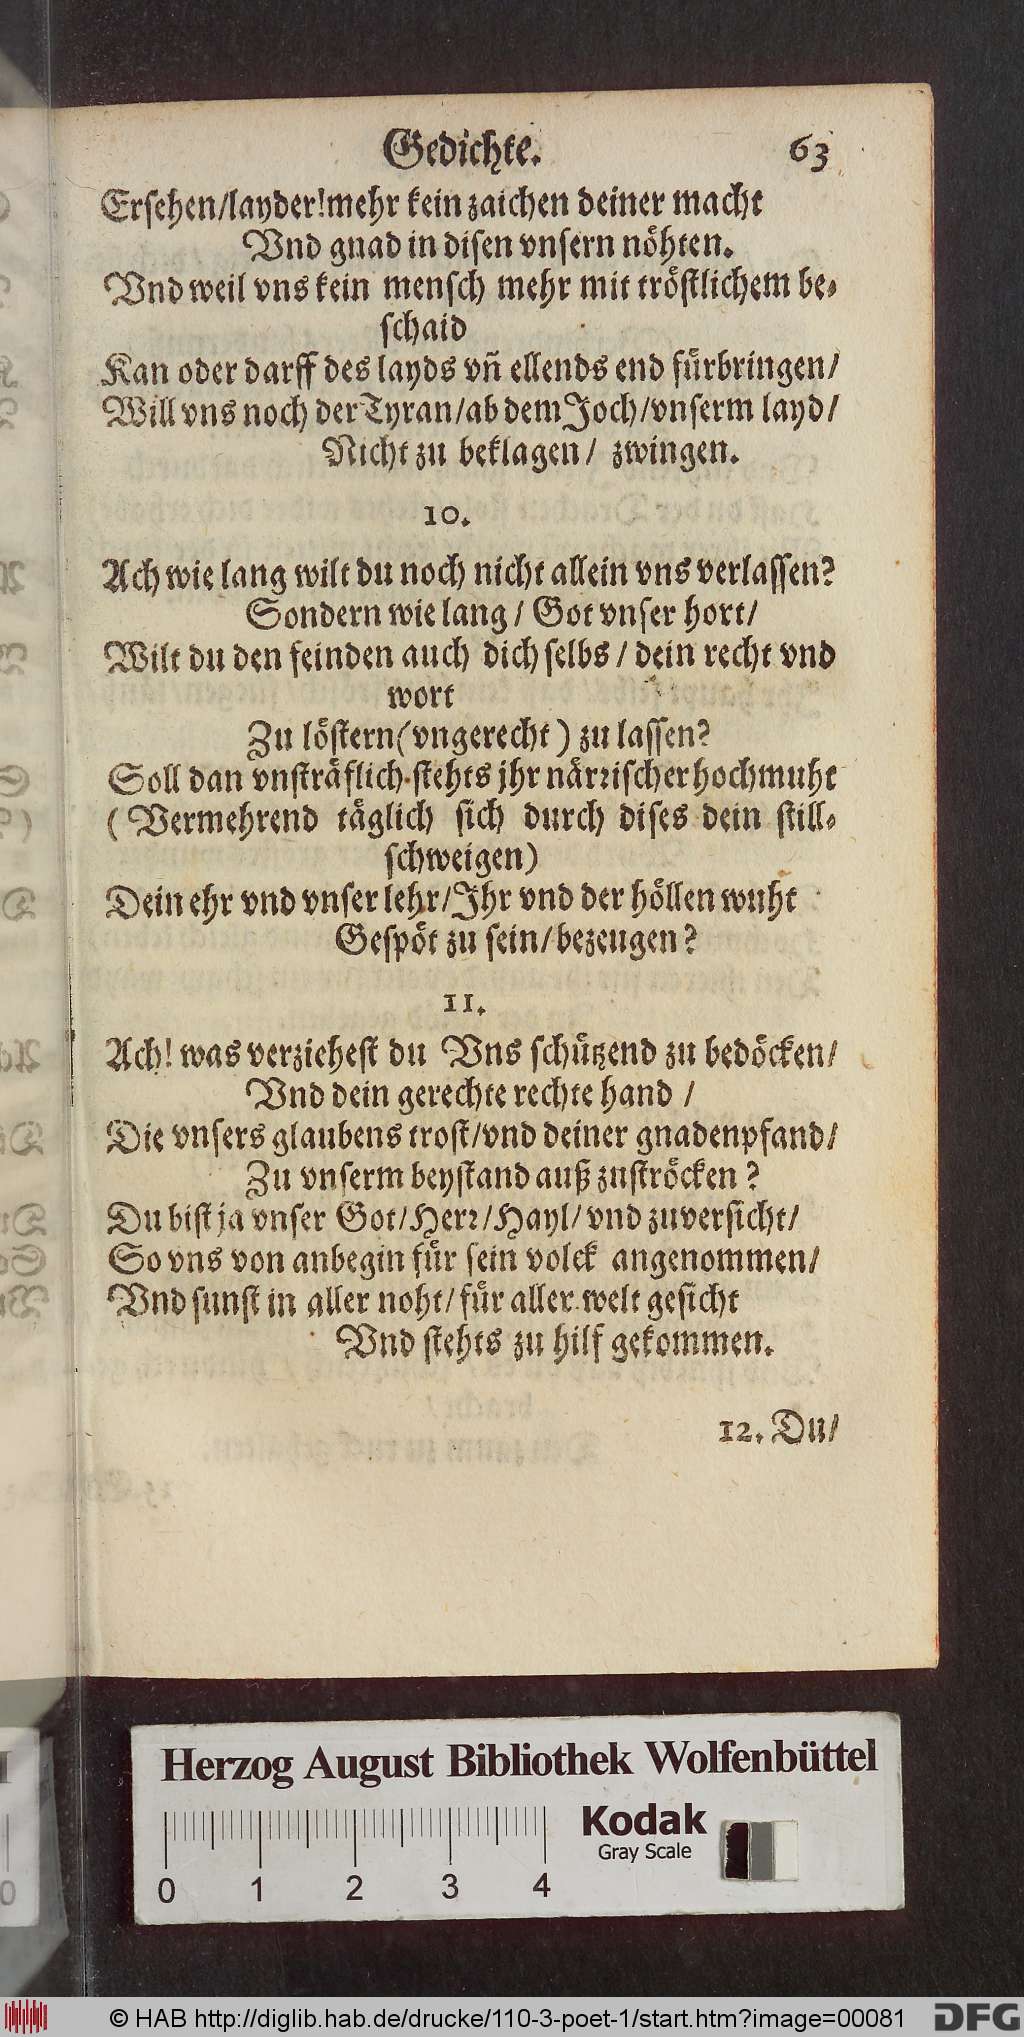 Gedichte. 63
Ersehen/layder!mehr kein zaichen deiner macht
Vnd gnad in disen vnsern nöhten.
Vnd weil vns kein mensch mehr mit tröstlichem be-
schaid
Kan oder darff des layds vñ ellends end fürbringen/
Will vns noch der Tyran/ab dem Joch/vnserm layd/
Nicht zu beklagen/ zwingen.
10.
Ach wie lang wilt du noch nicht allein vns verlassen?
Sondern wie lang/ Got vnser hort/
Wilt du den feinden auch dich selbs/ dein recht vnd
wort
Zu löstern(vngerecht) zu lassen?
Soll dan vnsträflich stehts jhr närrischer hochmuht
(Vermehrend täglich sich durch dises dein still-
schweigen)
Dein ehr vnd vnser lehr/Ihr vnd der höllen wuht
Gespöt zu sein/bezeugen?
11.
Ach! was verziehest du Vns schützend zu bedöcken/
Vnd dein gerechte rechte hand/
Die vnsers glaubens trost/vnd deiner gnadenpfand/
Zu vnserm beystand auß zuströcken?
Du bist ja vnser Got/Herr/Hayl/vnd zuversicht/
So vns von anbegin für sein volck angenommen/
Vnd sunst in aller noht/für aller welt gesicht
Vnd stehts zu hilf gekommen.
12. Du/
Herzog August Bibliothek Wolfenbüttel
Kodak
Gray Scale
0 1 2 3 4
© HAB http://diglib.hab.de/drucke/110-3-poet-1/start.htm?image=00081
DFG